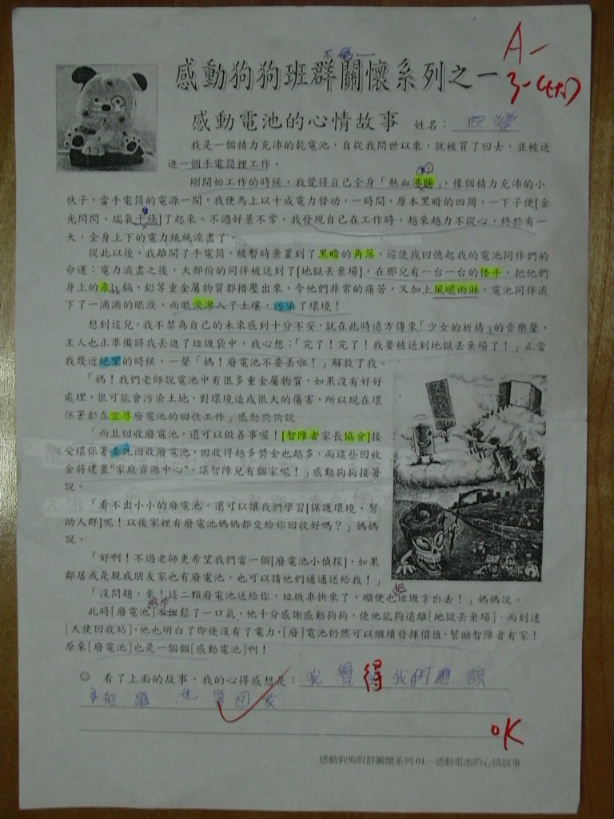 A-
感動狗狗班群關懷系列之一
感動電池的心情故事 姓名：
我是一個精力充沛的乾電池，自從我問世以來，就被買了回去，並被送
進一個手電筒裡工作。
剛開始工作的時候，我覺得自己全身「熱血沸騰」，像個精力充沛的小
伙子，當手電筒的電源一開，我便馬上以十成電力發功，一時間，原本黑暗的四周，一下子便[金
光閃閃、瑞氣千條]了起來。不過好景不常，我發現自己在工作時，越來越力不從心，終於有一
天，全身上下的電力統統流盡了。
從此以後，我離開了手電筒，被暫時棄置到了黑暗的角落，這使我回憶起我的電池同伴們的
命運：電力流盡之後，大部份的同伴被送到了[地獄丟棄場]，在那兒有一台一台的怪手，把他們
身上的汞、鎘、鉛等重金屬物質都擠壓出來，令他們非常的痛苦，又加上風吹雨淋，電池同伴流
下了一滴滴的眼淚，而眼淚滲入了土壤，污染了環境！
想到這兒，我不禁為自己的未來感到十分不安，就在此時遠方傳來「少女的祈禱」的音樂聲，
主人也正準備將我丟進了垃圾袋中，我心想：「完了！完了！我要被送到地獄丟棄場了！」正當
我幾近絕望的時候，一聲「媽！廢電池不要丟啦！」解救了我。
「媽！我們老師說電池中有很多重金屬物質，如果沒有好好
處理，很可能會污染土地，對環境造成很大的傷害，所以現在環
保署都在宣導廢電池的回收工作」感動狗狗說
「而且回收廢電池，還可以做善事喔！[智障者家長協會]接
受環保署委託回收廢電池，回收得越多獎金也越多，而這些回收
金將建置"家庭資源中心"，讓智障兒有個家呢！」感動狗狗接著
說。
「看不出小小的廢電池，還可以讓我們學習[保護環境、幫
助人群]呢！以後家裡有廢電池媽媽都交給你回收好嗎？」媽媽
說。
「好啊！不過老師更希望我們當一個[廢電池小偵探]，如果
鄰居或是親戚朋友家也有廢電池，也可以請他們通通送給我！」
「沒問題，來！這一顆廢電池送給你，垃圾車快來了，順便也把垃圾拿出去！」媽媽說。
此時[廢電池]鬆了一口氣，他十分感謝感動狗狗，使他能夠遠離[地獄丟棄場]，而到達
[天使回收站]，他也明白了即便沒有了電力，[廢]電池仍然可以繼續發揮價值，幫助智障者有家！
原來[廢電池]也是一個個[感動電池]啊！
☺ 看了上面的故事，我的心得感想是：我覺得我們應該
也 回收
OK
感動狗狗班群關懷系列01－感動電池的心情故事